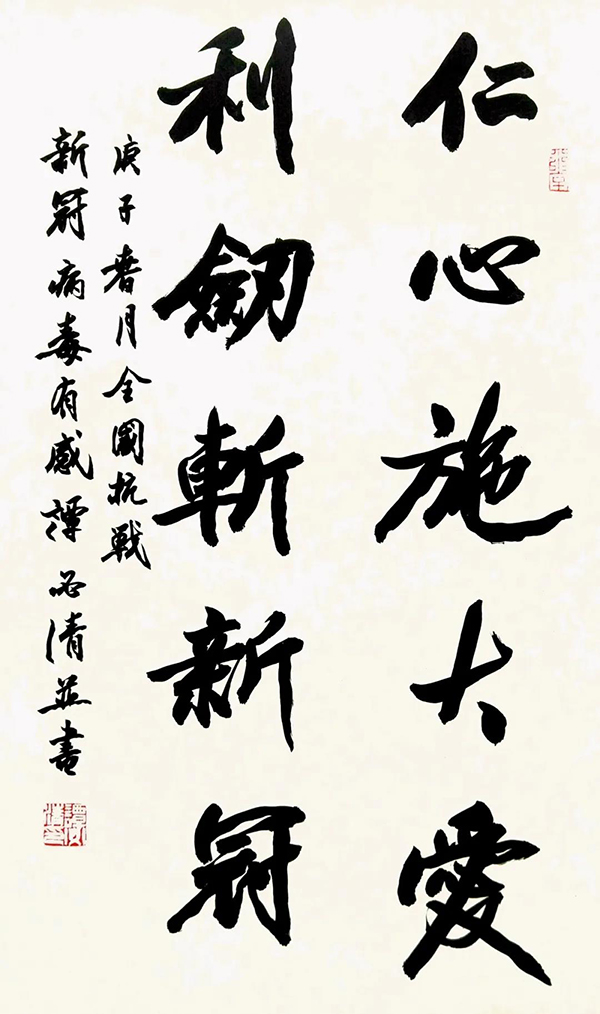 仁心施大愛
利劒斬新冠
庚子春月全國抗戰
新冠病毒有感譚必清並書